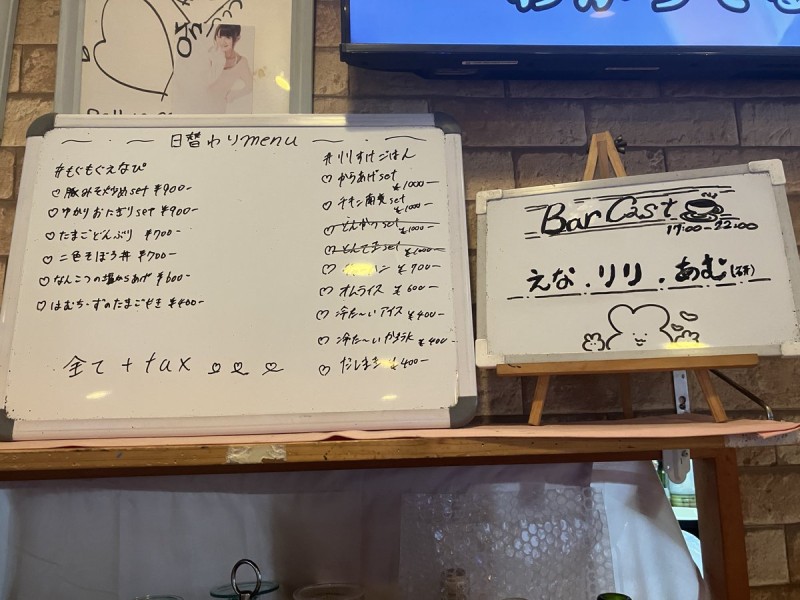 日替わりmenu
#もぐもぐえなぴ
♡豚みそ炒めset ¥900-
♡ゆかりおにぎりset ¥900-
♡たまごどんぶり ¥700-
♡二色そぼろ丼 ¥700-
♡なんこつの塩からあげ ¥600-
♡はむち-ずのたまごやき ¥400-
全て + tax
#リリすけごはん
♡からあげset
¥1000-
♡チキン南蛮set
¥1000-
♡とんかつset
¥1000-
♡とんてきset
¥1000-
¥700-
♡オムライス ¥600-
♡冷た〜いアイス ¥400-
♡冷た〜い ¥400-
♡だしまき ¥400-
Bar Cast
17:00-22:00
えな.リリ.あむ(研)